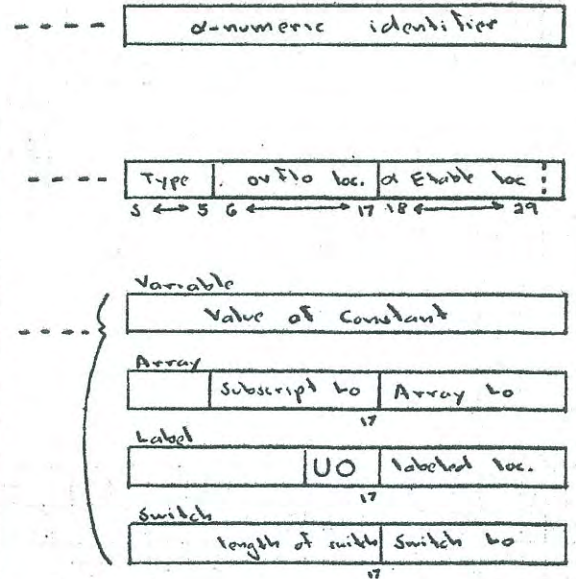 α-numeric identifier
Type ov flo loc. α Etable loc
S ↔ 5 6 ↔ 17 18 ↔ 29
Variable
Value of Constant
Array
Subscript Lo Array Lo
17
Label
UO labeled loc.
17
Switch
length of switch Switch Lo
17